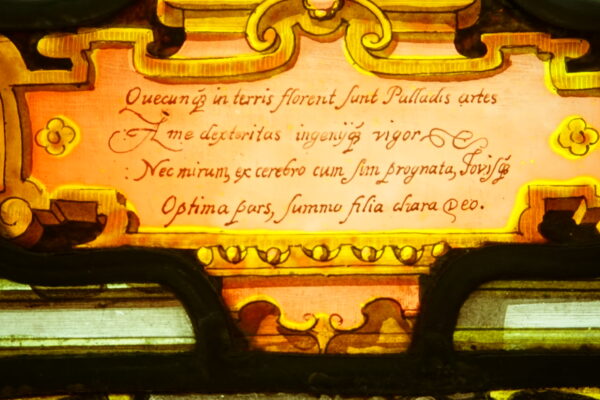 Quecunqꝫ in terris florent sunt Palladis artes
: A me dexteritas ingenijqꝫ vigor
: Nec mirum, ex cerebro cum sim prognata, Iovisqꝫ
Optima pars, summo filia chara Deo.